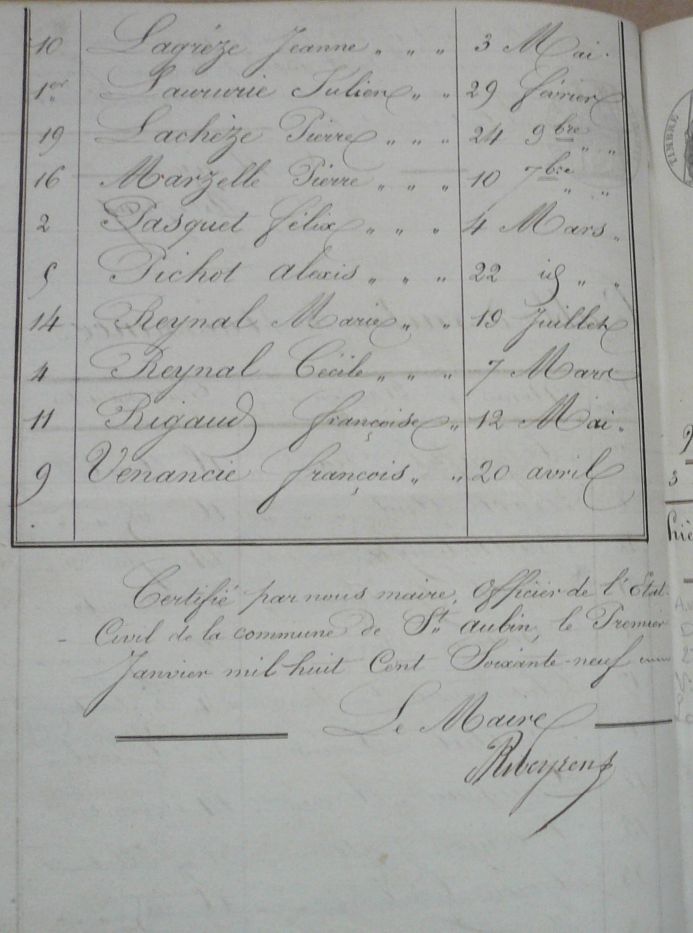 10 Lagrèze Jeanne „ „ „ 3 Mai.
1er Laururie Julien „ „ 29 février
19 Lachèze Pierre „ „ „ 24 9bre „ „
16 Marzelle Pierre „ „ „ 10 7bre „ „
2 Pasquet félix „ „ „ 4 Mars „
5 Pichot alexis „ „ „ 22 id „ „
14 Reynal Marie „ „ 19 Juillet
4 Reynal Cécile „ „ „ 7 Mars
11 Rigaud françoise „ 12 Mai „
9 Venancie françois „ „ 20 avril
Certifié par nous maire, officier de l'Etat-
Civil de la commune de St. aubin, le Premier
Janvier mil huit Cent Soixante-neuf
Le Maire
TIMBRE